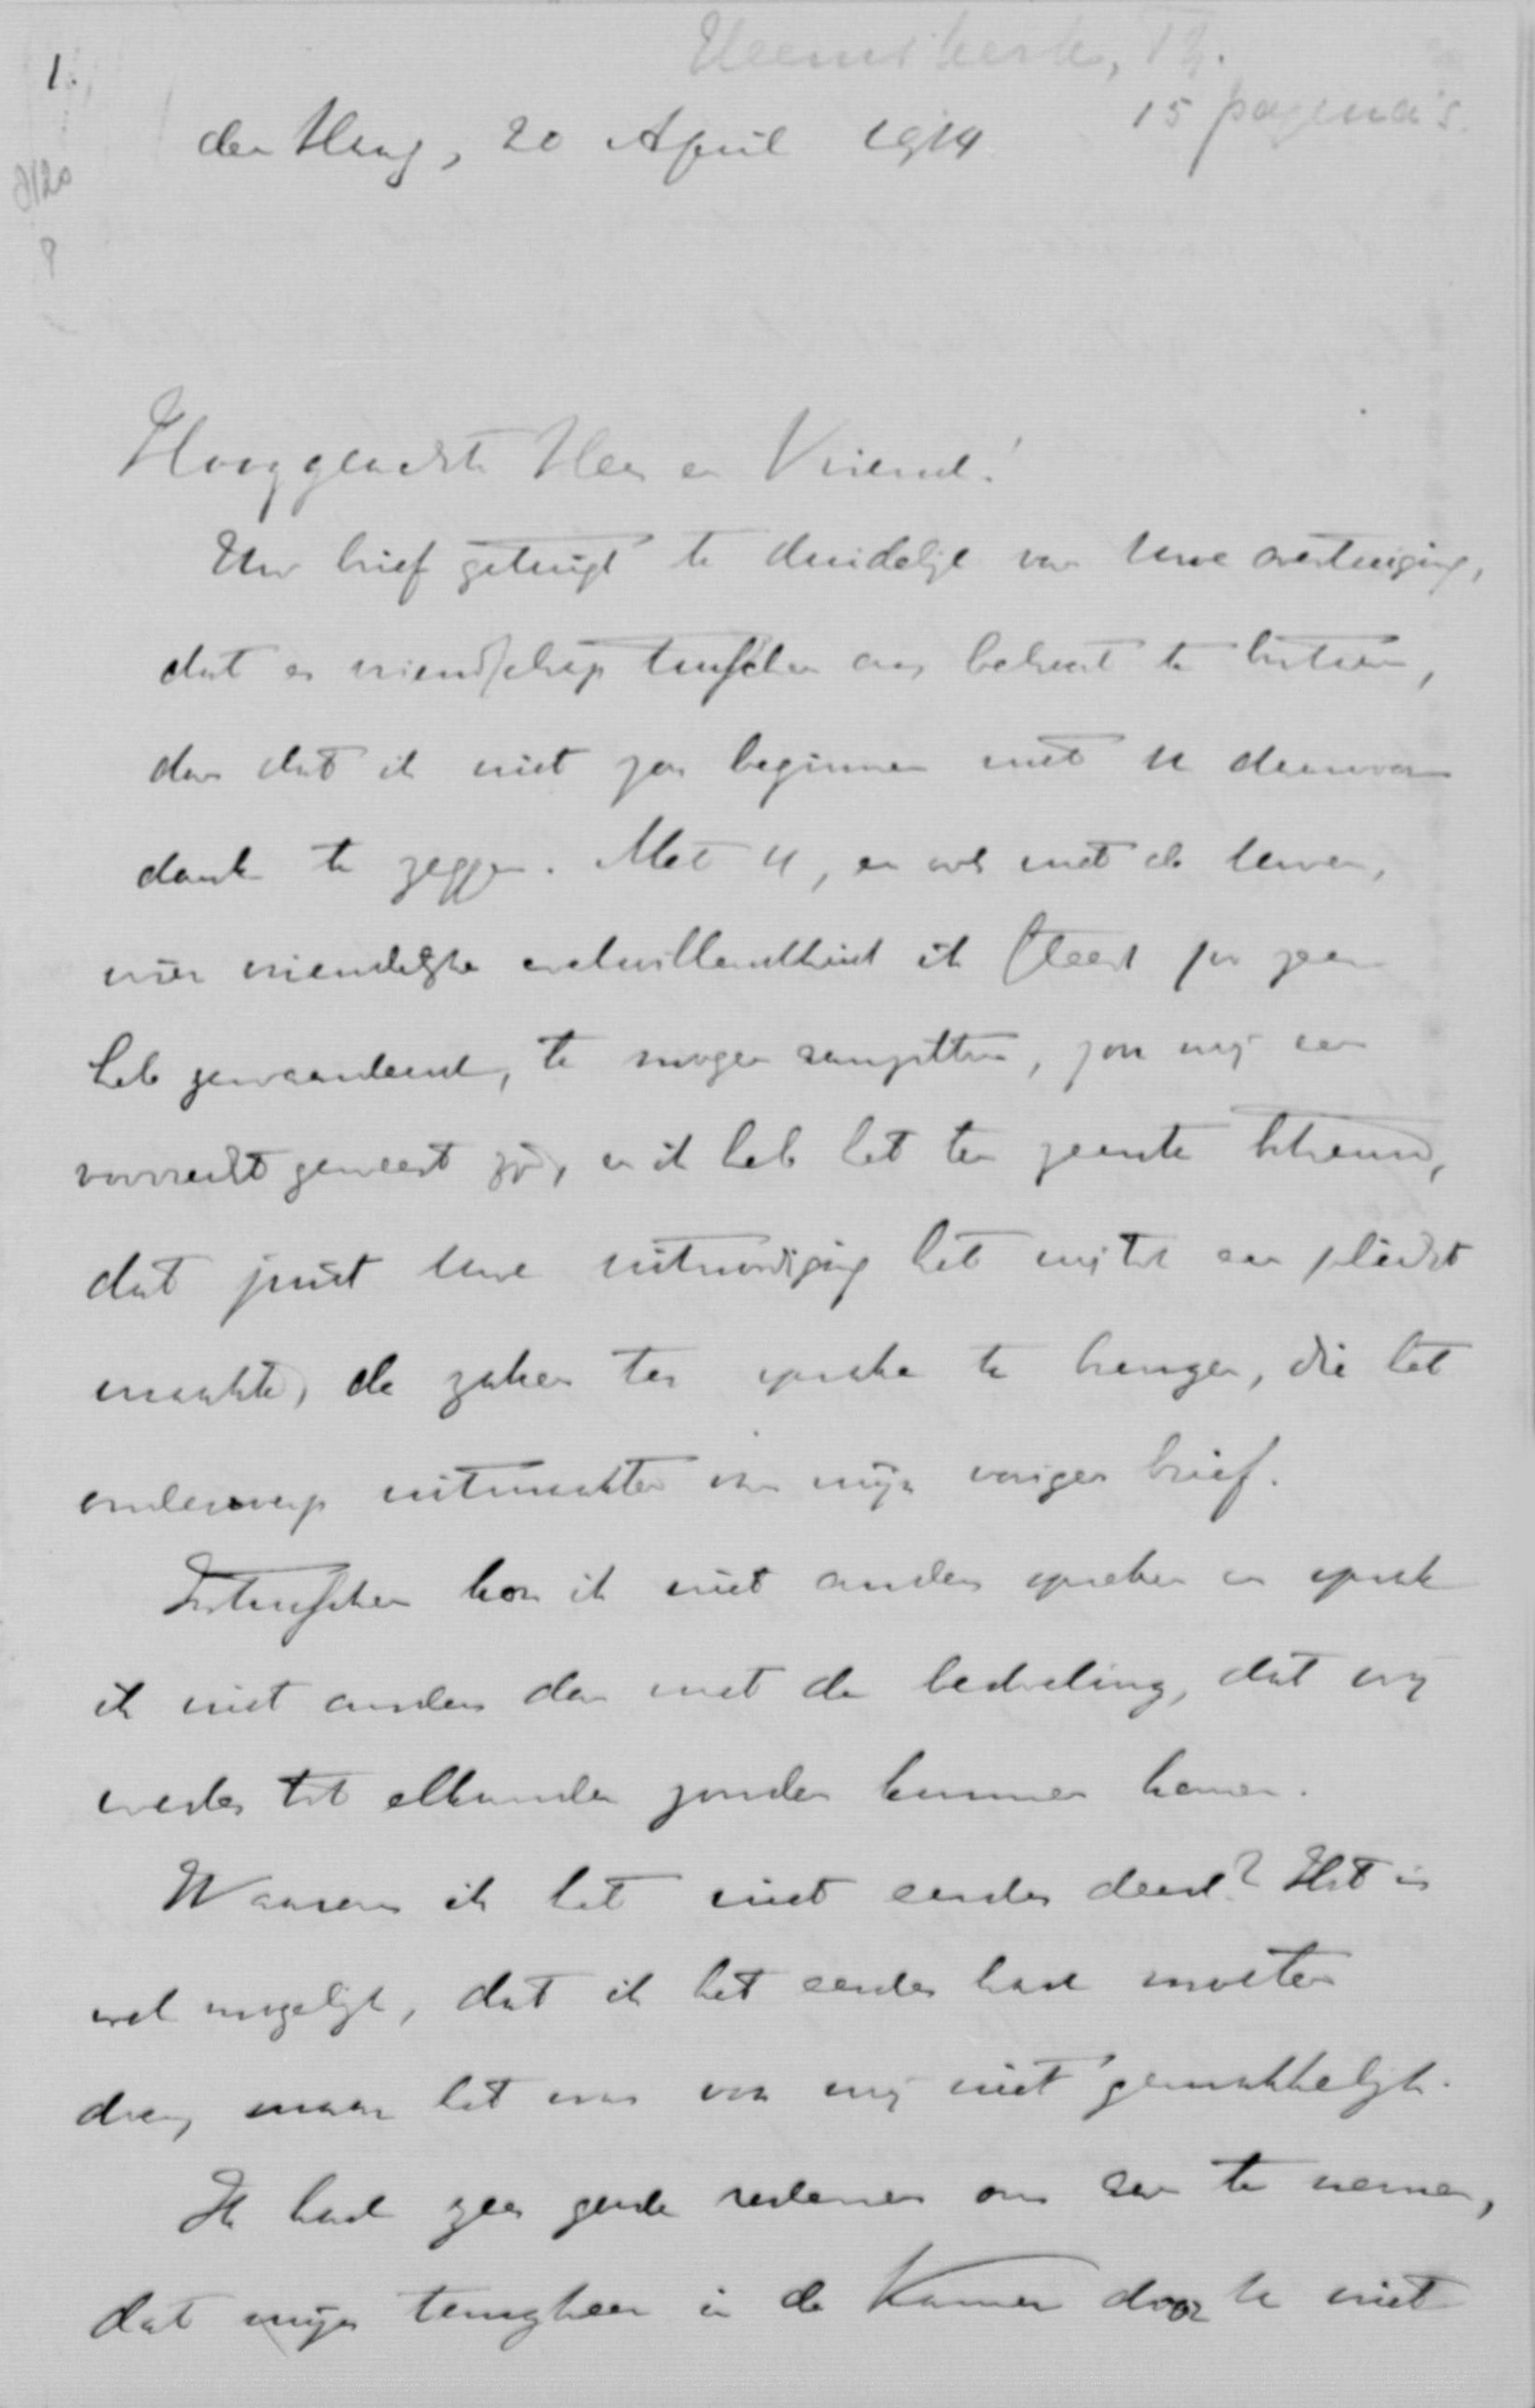 1.
Heemskerk, Th.
15 pagina's.
den Haag, 20 April 1914
Hooggeachte Heer en Vriend!
Uw brief getuigt te duidelijk van Uwe overtuiging,
dat er vriendschap tusschen ons behoort te bestaan,
dan dat ik niet zou beginnen met U daarvoor
dank te zeggen. Met U, en ook met de Uwen,
wier vriendelijke welwillendheid ik steeds zoo zeer
heb gewaardeerd, te mogen aanzitten, zou mij een
voorrecht geweest zijn, en ik heb het ten zeerste betreurd,
dat juist Uwe uitnoodiging het mij tot een plicht
maakte, de zaken ter sprake te brengen, die het
onderwerp uitmaakten van mijn vorigen brief.
Intusschen kon ik niet anders spreken en sprak
ik niet anders dan met de bedoeling, dat wij
weder tot elkander zouden kunnen komen.
Waarom ik het niet eerder deed? Het is
wel mogelijk, dat ik het eerder had moeten
doen, maar het was voor mij niet gemakkelijk.
Ik had zeer goede redenen om aan te nemen,
dat mijn terugkeer in de Kamer door U niet